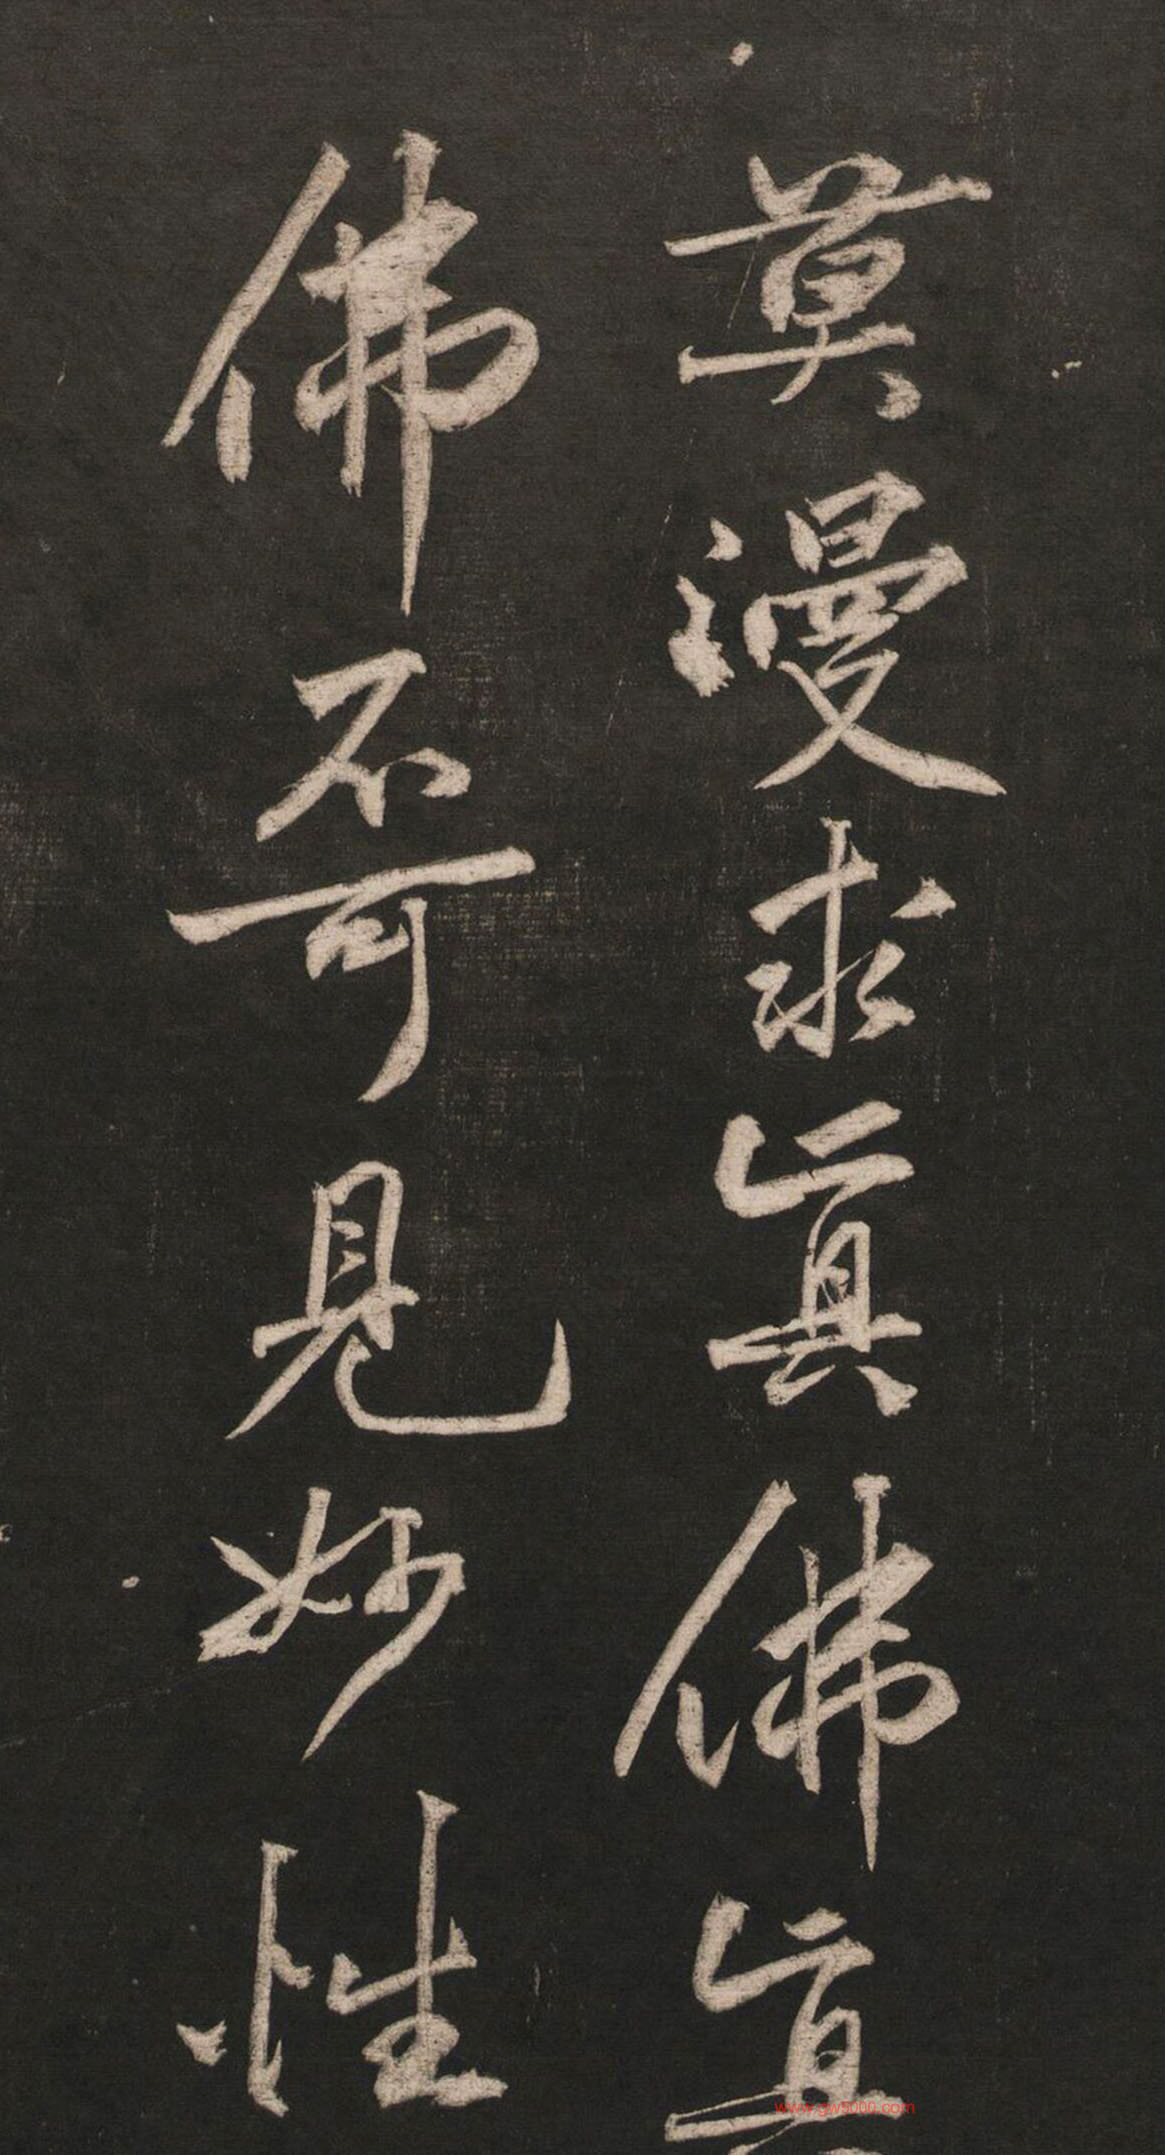 莫漫求真佛真
佛不可見妙性
www.gw5000.com